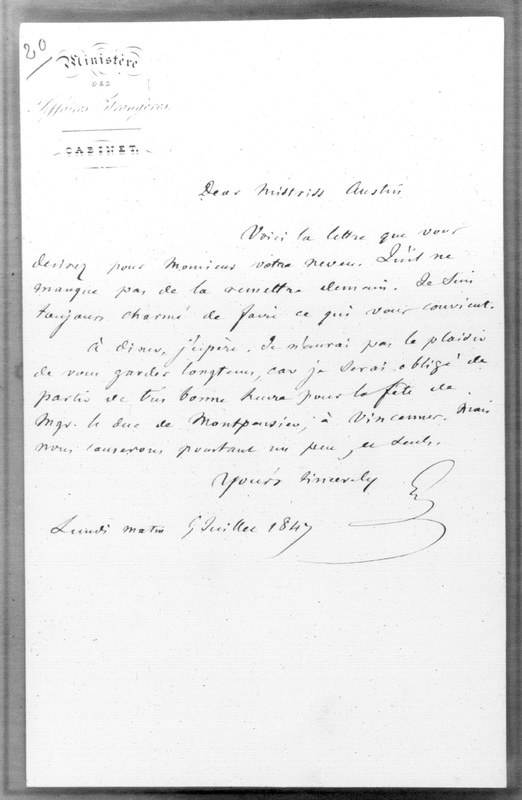 20
Ministère
DES
Affaires Etrangères
CABINET.
Dear Mistriss Austin
Voici la lettre que vous
desirez pour Monsieur votre neveu. Qu'il ne
manque pas de la remettre demain. Je suis
toujours charmé de faire ce qui vous convient.
à diner, j'espère. Je n'aurai pas le plaisir
de vous garder longtems, car je serai obligé de
partir de très bonne heure pour la fête de
Mgr. le duc de Montpensier, à Vincennes. Mais
nous causerons pourtant un peu, et seuls.
Yours sincerely
Lundi matin 5 Juillet 1847